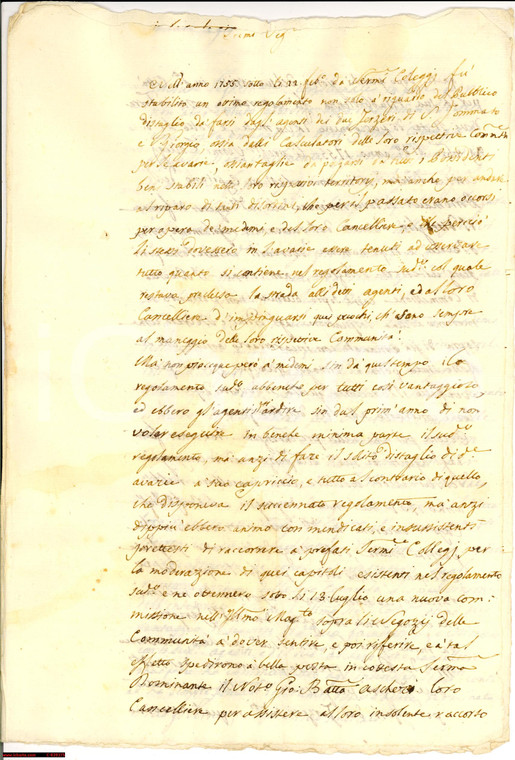 Ser.mi Sig.ri
Nell'anno 1755 sotto li 22 feb.o da Ser.mi Collegj fù
stabilito un ottimo regolamento non solo a riguardo del Pubblico
distaglio da farsi dagl'agenti dei due Terzeri di S. Tommaso
e S. Giorgio, ossia delli Calcolatori delle loro rispettive Comm.tà
per le avarie, ed
ben stabili nelli loro rispettivi territorj, ma anche per
al riparo di tanti disordini, che per il passato erano occorsi
per opera de medemi, e del loro Cancelliere, e perciò
li stessi dovessero in l'avarie avere tenuti ad osservare
tutto quanto si contiene nel regolamento sud.o col quale
restava preclusa la strada alli detti agenti, ed al loro
Cancelliere d'impinguarsi que pochi, ch'erano sempre
al maneggio delle loro rispettive Communità.
Mà non piacque però a medemi sin da quel tempo il
regolamento sud.o abbenche per tutti così vantaggioso,
ed ebbero gl'agenti l'ardire sin dal prim'anno di non
voler eseguire in benche minima parte il sud.o
regolamento, mà anzi di fare il solito distaglio di d.e
avarie a suo capriccio, e tutto al contrario di quello,
che disponeva il succennato regolamento, mà anzi
di più ebbero animo con mendicati, e insussistenti
pretesti di raccorrere a prefati Ser.mi Collegj per
la moderazione di quei capitoli esistenti nel regolamento
sud.o e ne ottennero sotto li 18 luglio una nuova com=
missione nell'Ill.mo Mag.to sopra li Negozj delle
Communità a dover sentire, e poi riferire, e a tal
effetto spedirono a bella posta in cotesta Ser.ma
Dominante il Not.o Gio: Batta Ascheri loro
Cancelliere per assistere al loro insolente raccorso